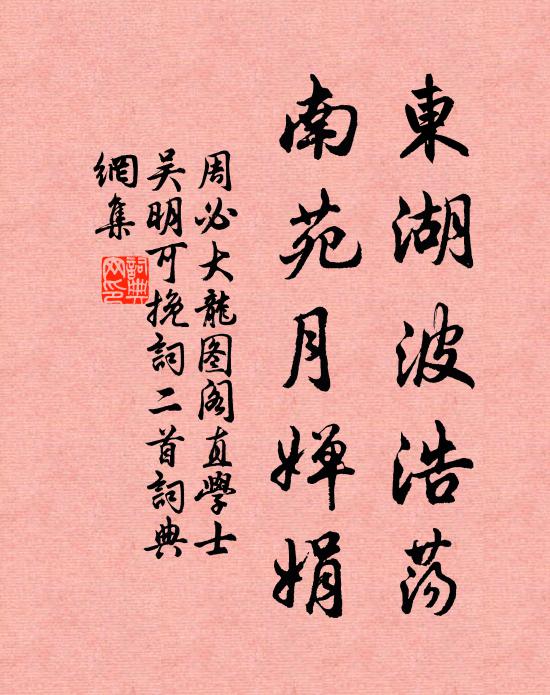 東湖波浩荡
南苑月婵娟
周必大龍图阁直學士
吴明可挽詞二首詞典
網集
詞典網印